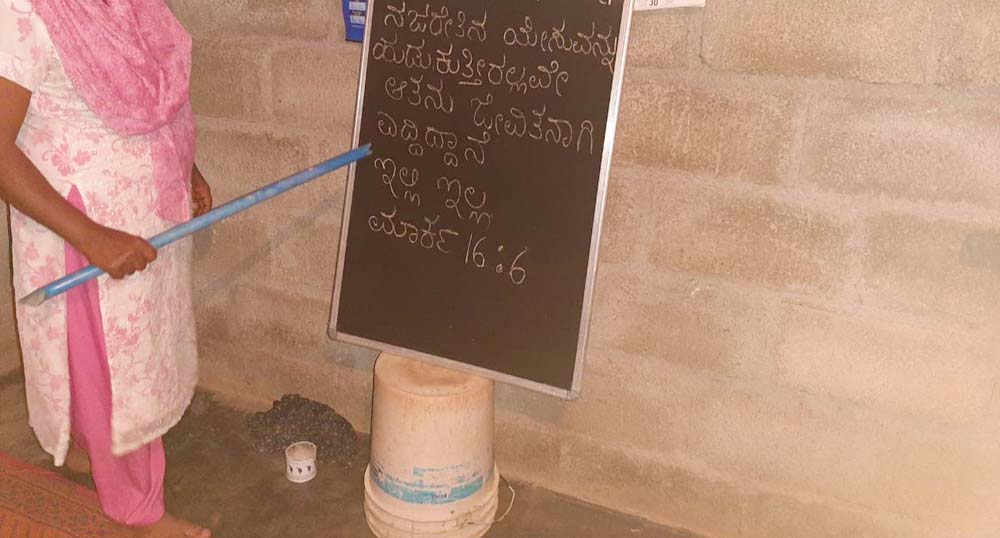 ನಜರೇತಿನ ಯೇಸುವನ್ನು
ಹುಡುಕುತ್ತೀರಲ್ಲವೇ
ಆತನು ಜೀವಿತನಾಗಿ
ಎದ್ದಿದ್ದಾನೆ
ಇಲ್ಲಿ ಇಲ್ಲ
ಮಾರ್ಕ 16:6
30